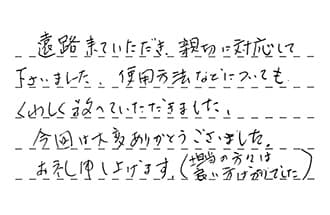 遠路来ていただき、親切に対応して
下さいました、使用方法などについても
くわしく教へていただきました。
今回は大変ありがとうございました。
お礼申し上げます。(担当の方々は
良い方ばかりでした)